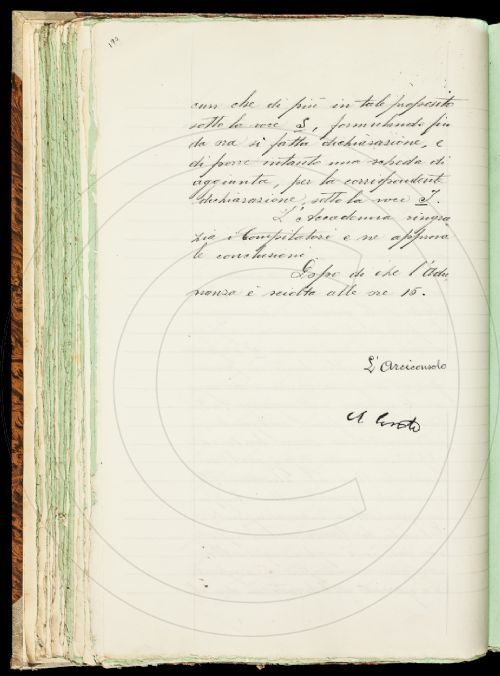 194
cun che di più in tale proposito
sotto la voce I, formulando fin
da ora sì fatta dichiarazione, e
di porre intanto una scheda di
aggiunta, per la corrispondente
dichiarazione, sotto la voce J.
L'Accademia ringra
zia i Compilatori e ne approva
le conclusioni.
Dopo di che l'Adu
nanza è sciolta alle ore 15.
L'Arciconsolo